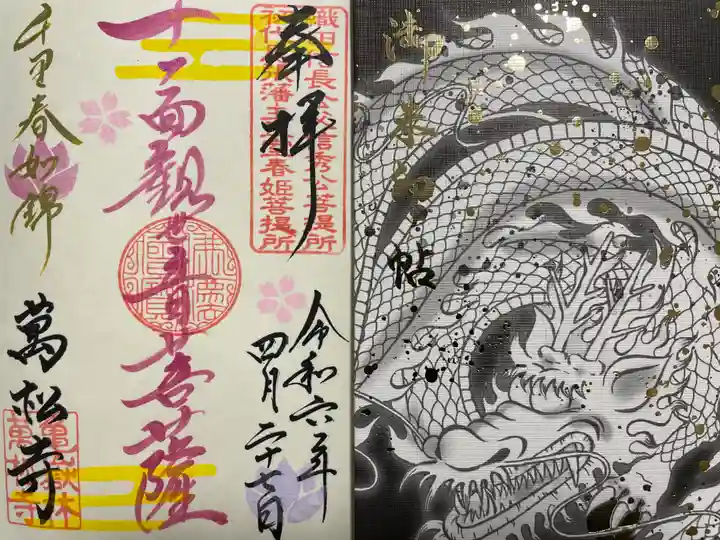 御朱印帖
奉拝
織田信長公父信秀公菩提所
初代尾張藩主正室春姫菩提所
令和六年
四月二十七日
十一面觀世音菩薩
千里春如錦
萬松寺
亀嶽林
萬松寺